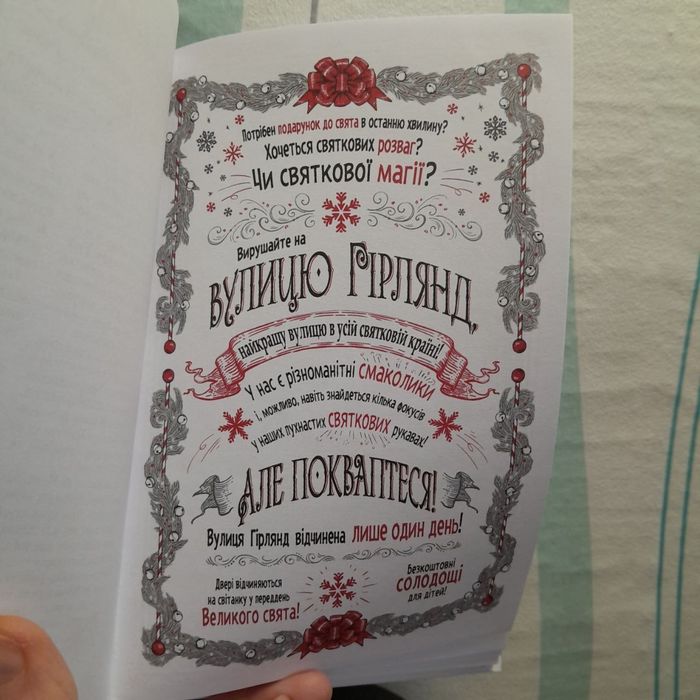 Потрібен подарунок до свята в останню хвилину?
Хочеться святкових розваг?
Чи святкової магії?
Вирушайте на
вулицю Гірлянд,
найкращу вулицю в усій святковій країні!
У нас є різноманітні смаколики
і, можливо, навіть знайдеться кілька фокусів
у наших пухнастих святкових рукавах!
Але поквaптеся!
Вулиця Гірлянд відчинена лише один день!
Двері відчиняються
на світанку у переддень
Великого свята!
Безкоштовні
солодощі
для дітей!